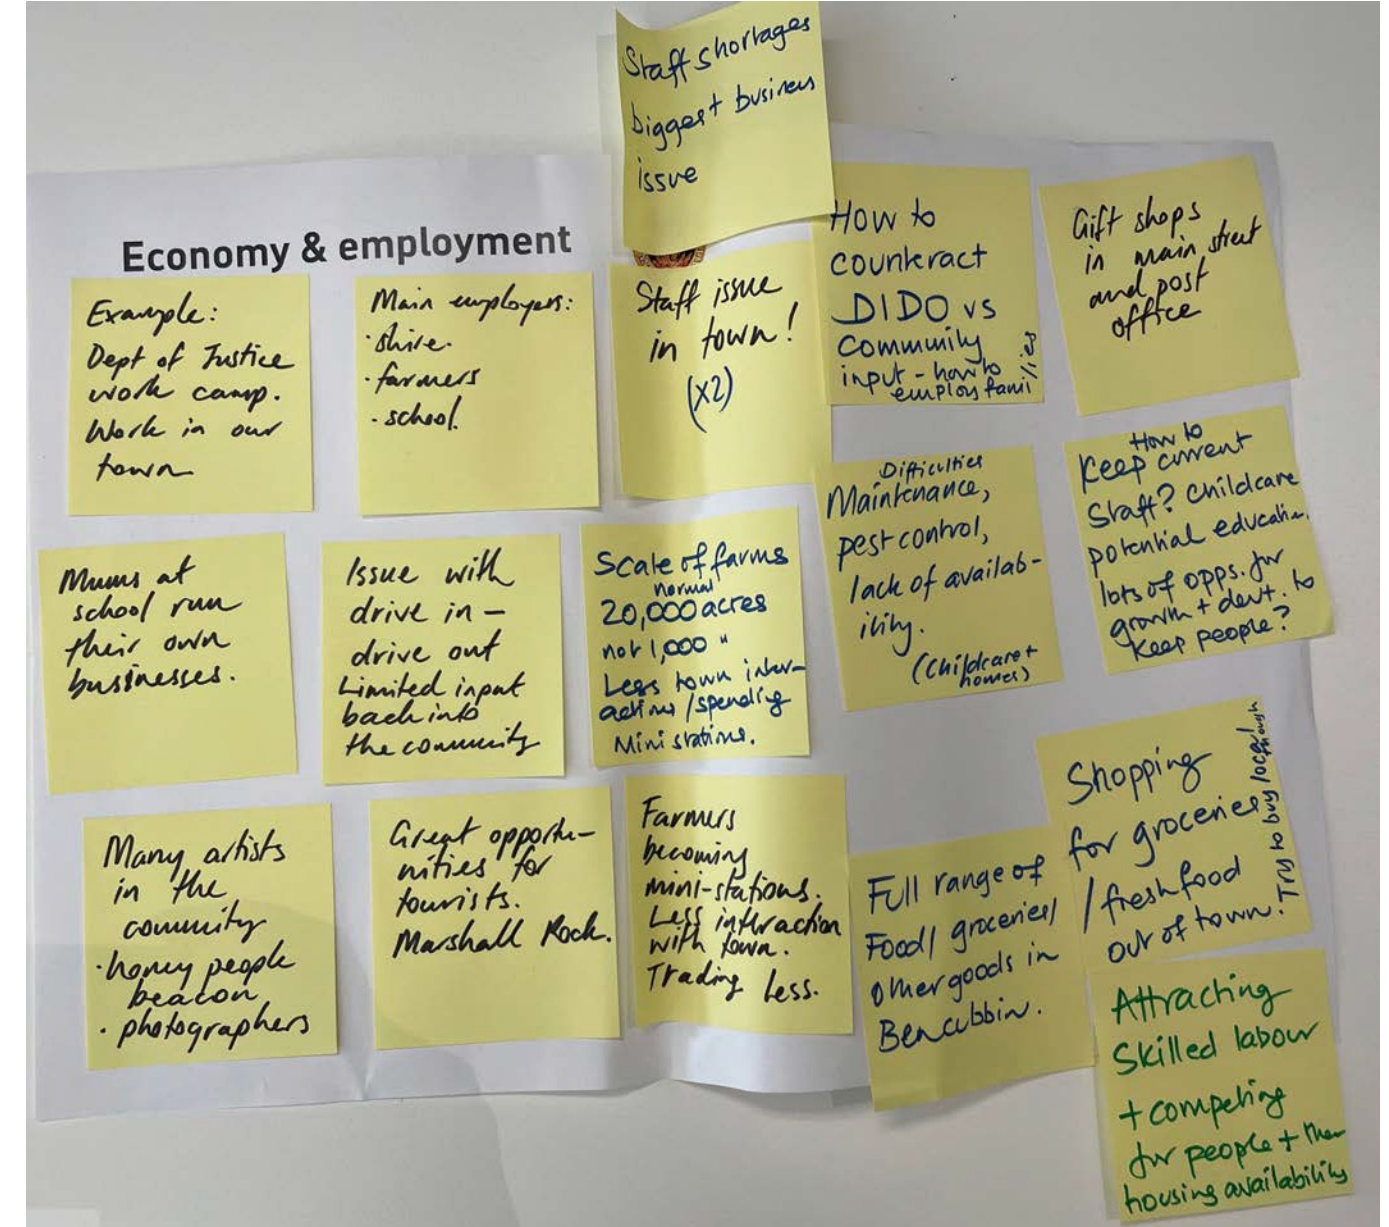 Staff shortages
biggest business
issue
Economy & employment
Example:
Dept of Justice
work camp.
Work in our
town
Main employers:
· shire.
· farmers
· school.
Staff issue
in town!
(x2)
How to
counteract
DIDO vs
Community
input - how to
employ families
Gift shops
in main street
and post
office
Mums at
school run
their own
businesses.
Issue with
drive in –
drive out
Limited input
back into
the community
Scale of farms
normal
20,000 acres
not 1,000 "
Less town inter-
actions/spending
Mini stations.
Difficulties
Maintenance,
pest control,
lack of availab-
ility.
(Childcare +
homes)
How to
Keep current
Staff? Childcare
potential education.
lots of opps. for
growth + devt. to
keep people?
Many artists
in the
community
· honey people
beacon
· photographers
Great opportu-
nities for
tourists.
Marshall Rock.
Farmers
becoming
mini-stations.
Less interaction
with town.
Trading Less.
Full range of
Food/ groceries/
other goods in
Bencubbin.
Shopping
for groceries
/fresh food
out of town.
Try to buy local
though
Attracting
Skilled labour
+ competing
for people + then
housing availability